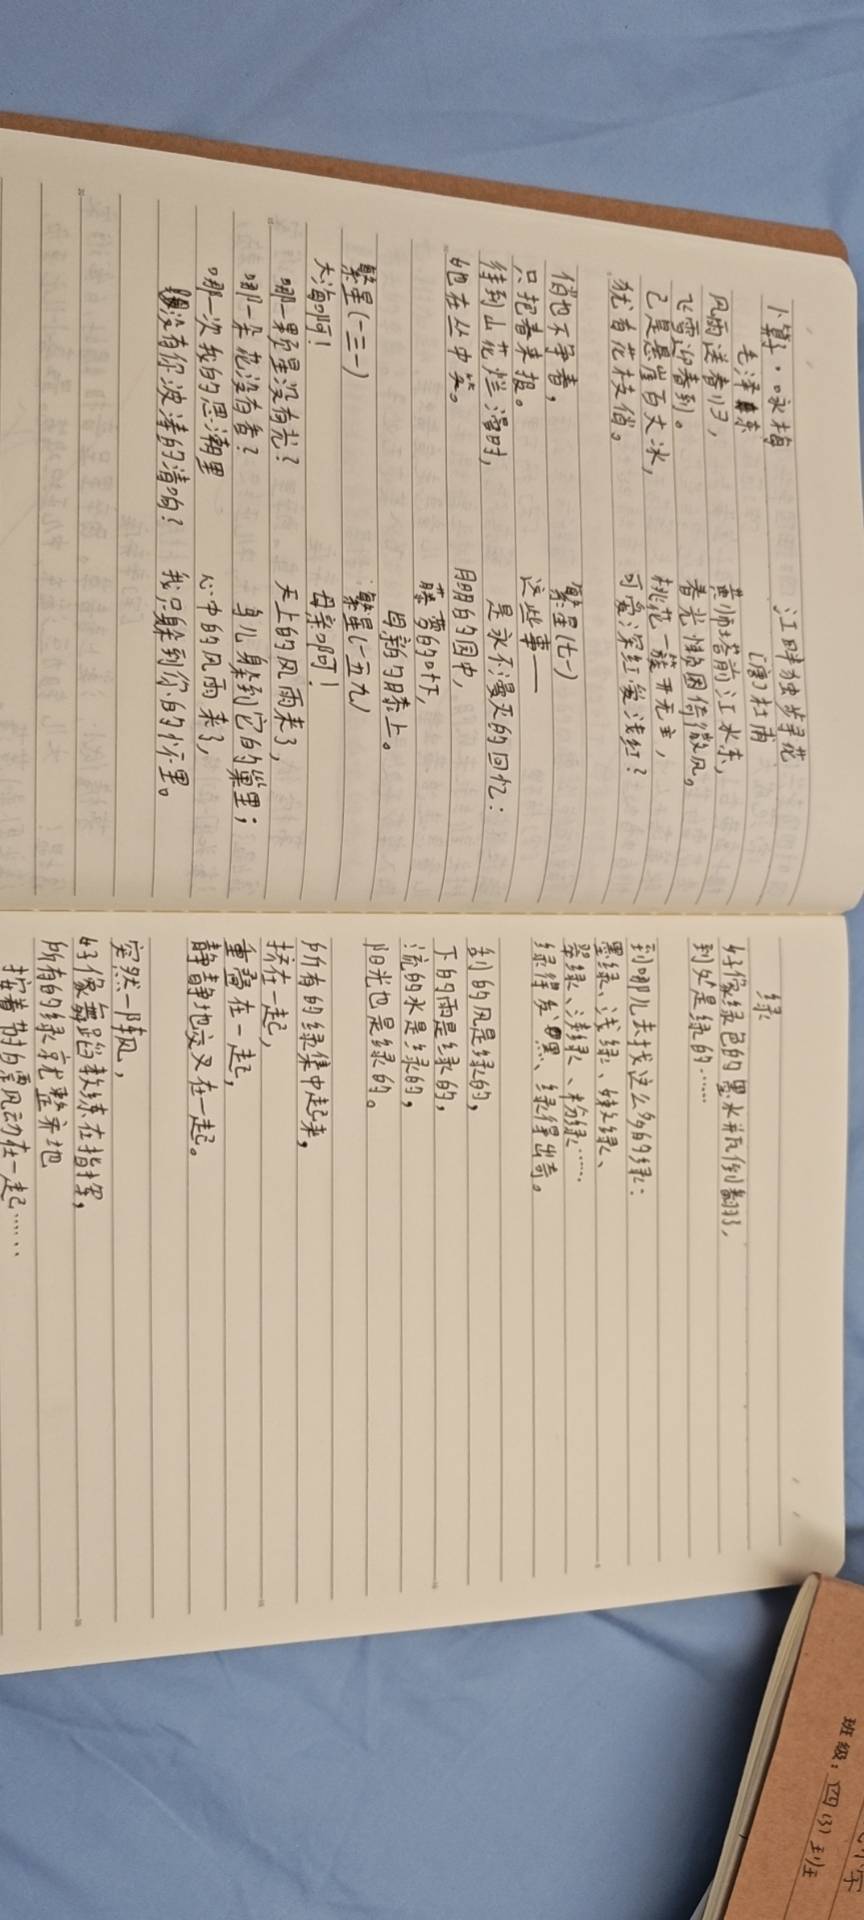 卜算子·咏梅
毛泽东
风雨送春归，
飞雪迎春到。
已是悬崖百丈冰，
犹有花枝俏。
俏也不争春，
只把春来报。
待到山花烂漫时，
她在丛中笑。
繁星(一三一)
大海啊！
哪一颗星没有光？
哪一朵花没有香？
哪一次我的思潮里
没有你波涛的清响？
江畔独步寻花
[唐]杜甫
黄师塔前江水东，
春光懒困倚微风。
桃花一簇开无主，
可爱深红爱浅红？
繁星(七一)
这些事——
是永不漫灭的回忆：
月明的园中，
藤萝的叶下，
母亲的膝上。
繁星(一五九)
母亲啊！
天上的风雨来了，
鸟儿躲到它的巢里；
心中的风雨来了，
我只躲到你的怀里。
绿
好像绿色的墨水瓶倒翻了，
到处是绿的……
到哪儿去找这么多的绿：
墨绿、浅绿、嫩绿、
翠绿、淡绿、粉绿……
绿得发黑、绿得出奇。
刮的风是绿的，
下的雨是绿的，
流的水是绿的，
阳光也是绿的。
所有的绿集中起来，
挤在一起，
重叠在一起，
静静地交叉在一起。
突然一阵风，
好像舞蹈教练在指挥，
所有的绿就整齐地
按着节拍飘动在一起……
班级：四(3)班